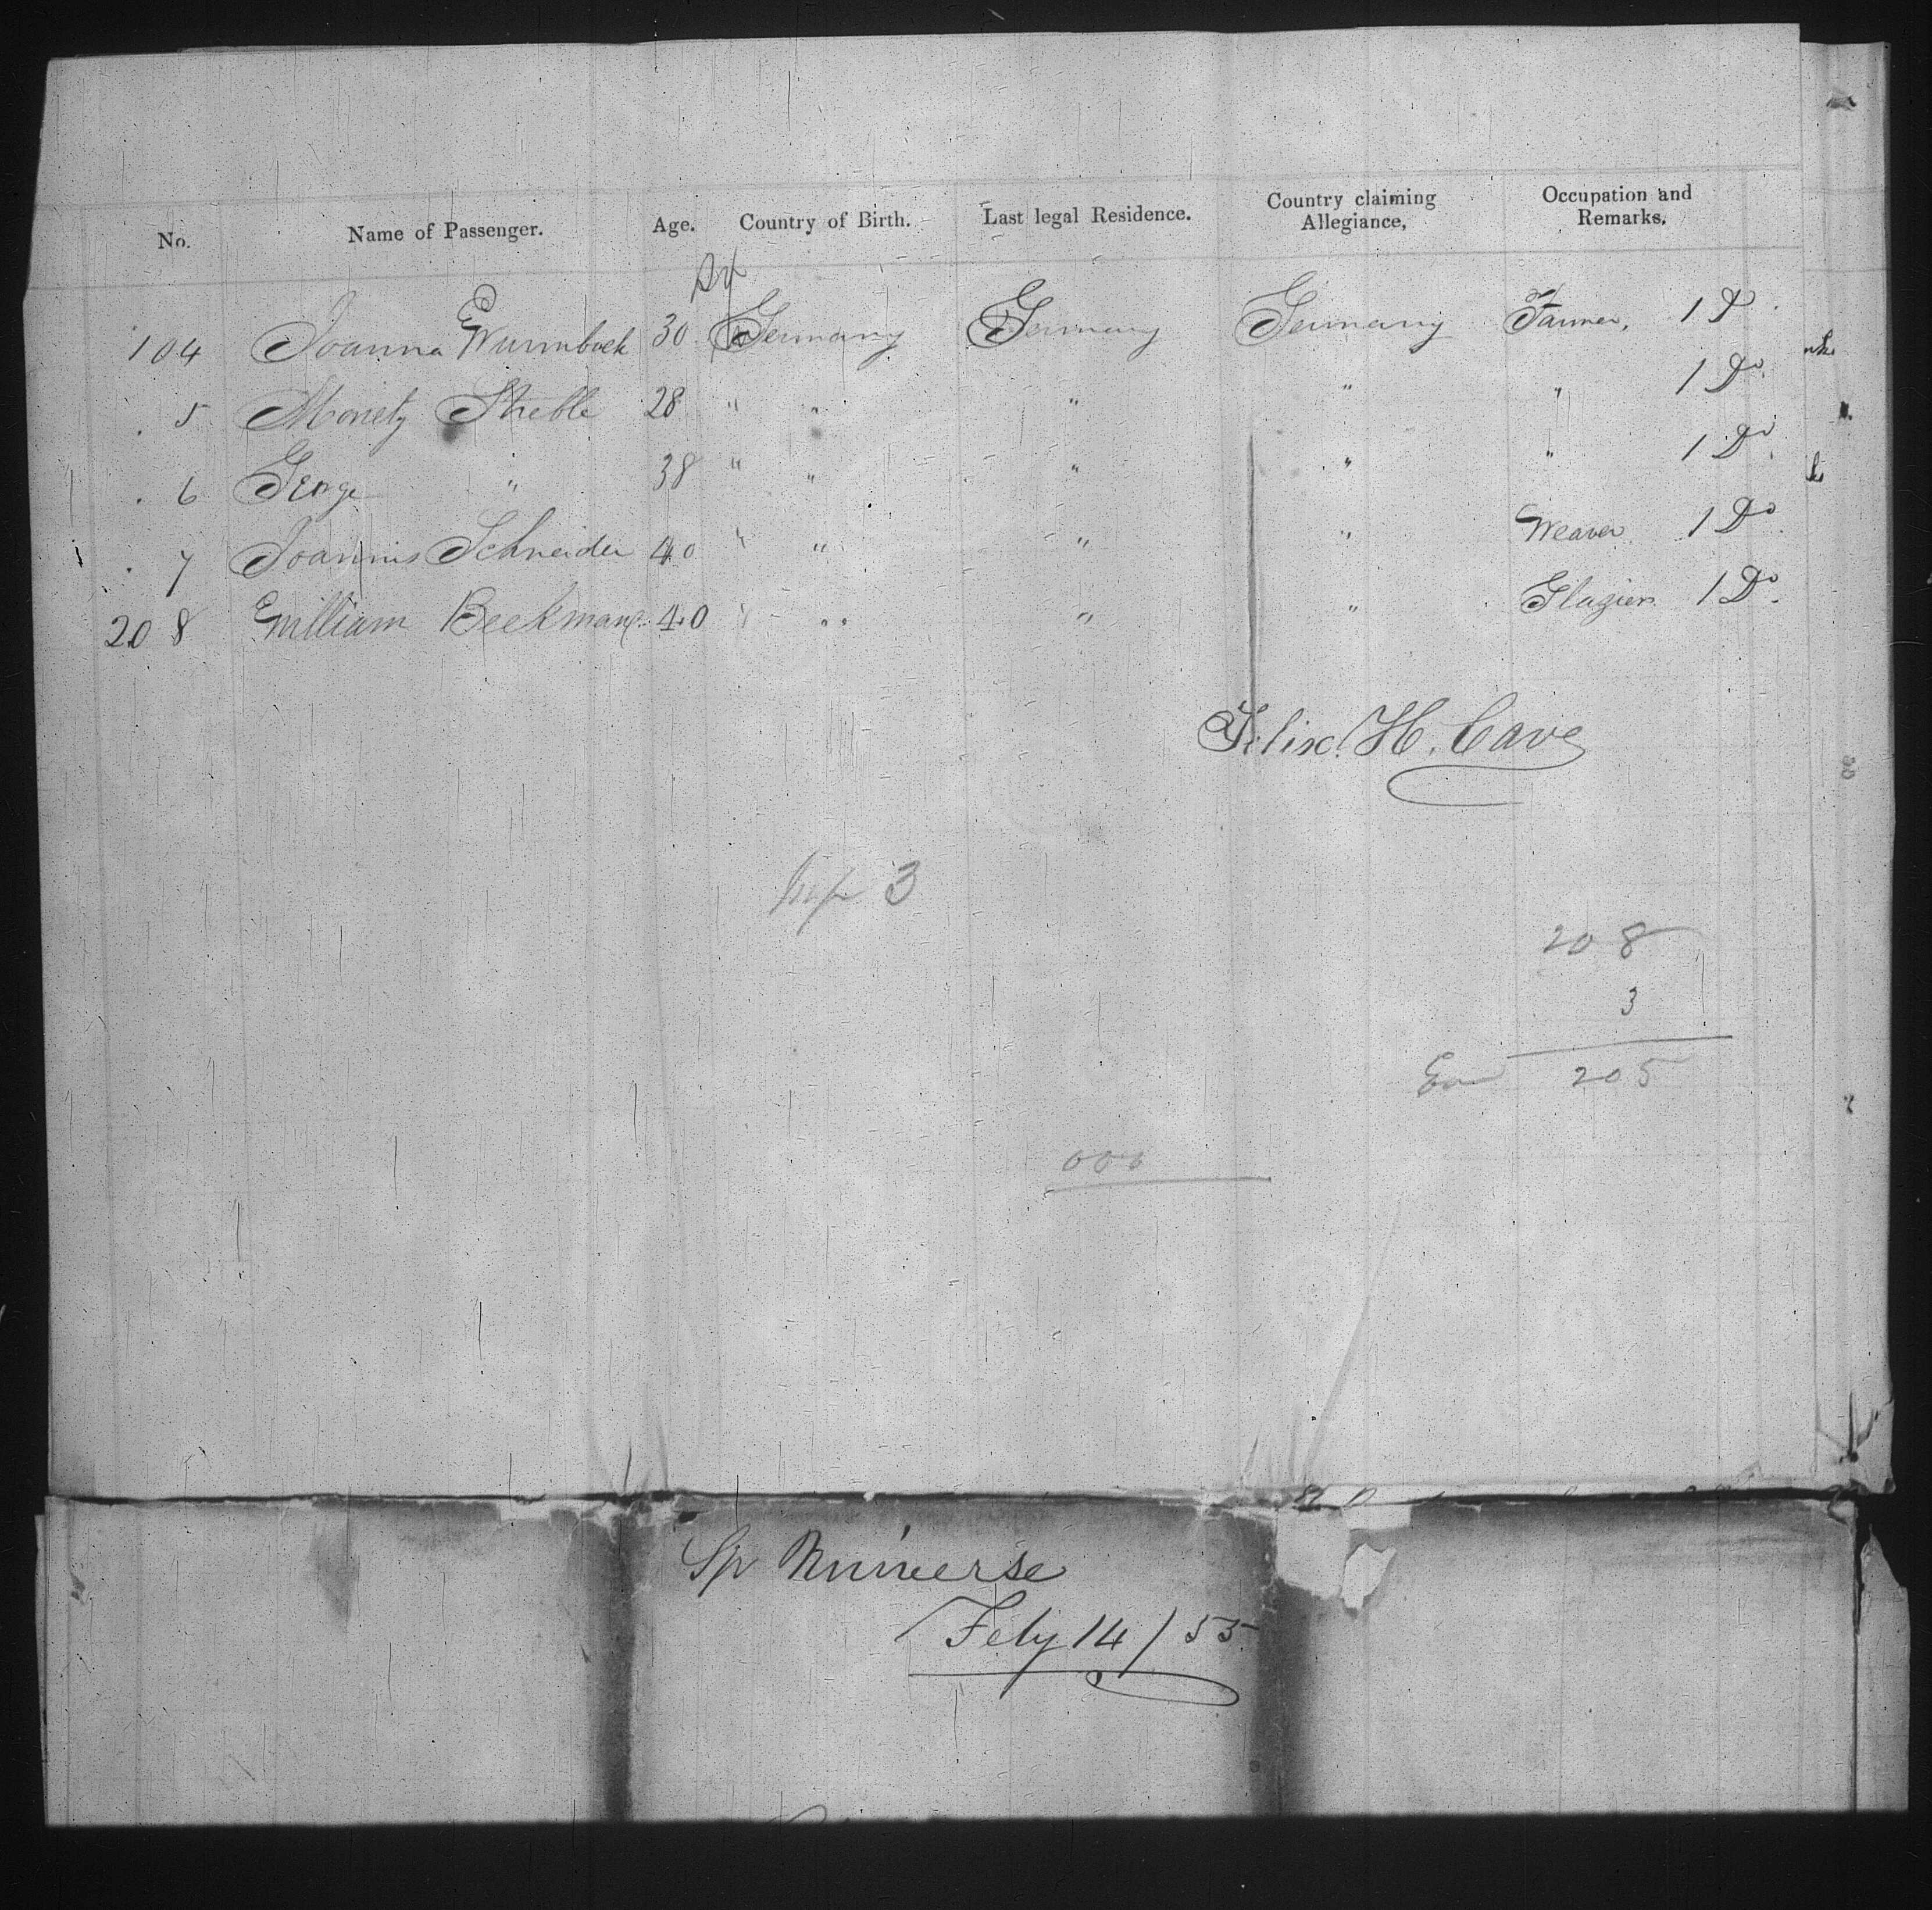 No. Name of Passenger. Age. Country of Birth. Last legal Residence. Country claiming Allegiance, Occupation and Remarks,
104 Joanna Wurmbach 30 Germany Germany Germany Farmer, 1 Do
. 5 Moritz Streble 28 " " " " " 1 Do.
. 6 George " 38 " " " " " 1 Do.
. 7 Joannis Schneider 40 " " " " Weaver 1 Do
20 8 William Beekman 40 " " " " Glazier 1 Do.
Felix H. Cave
Inf 3
208
3
205
000
Sp Universe
Feby 14 / 55